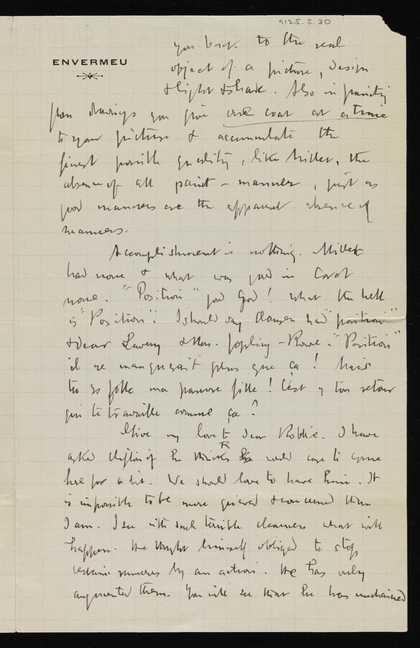 9125.5.30
ENVERMEU
you back to the real
object of a picture, design
& light & shade. Also in painting
from drawings you give one coat at a time
to your pictures & accumulate the
finest possible quality, like Millet, the
absence of all paint-manner, just as
good manners are the apparent absence of
manners.
Accomplishment is nothing. Millet
had none & what was good in Corot
none. "Position" good God! what the hell
is "Position". I should say had "position"
& dear Lavery & Mrs. "Position"
il ne manquerait plus que ça!
es folle ma pauvre fille! C'est ton retour
qui te travaille comme ça?
Give my love to dear Robbie. I have
asked if he would care to come
here for a bit. We should love to have him. It
is impossible to be more grieved & concerned than
I am. I see with such terrible clearness what will
happen. He thought himself obliged to stop
certain rumours by an action. He has only
augmented them. You will see that he has